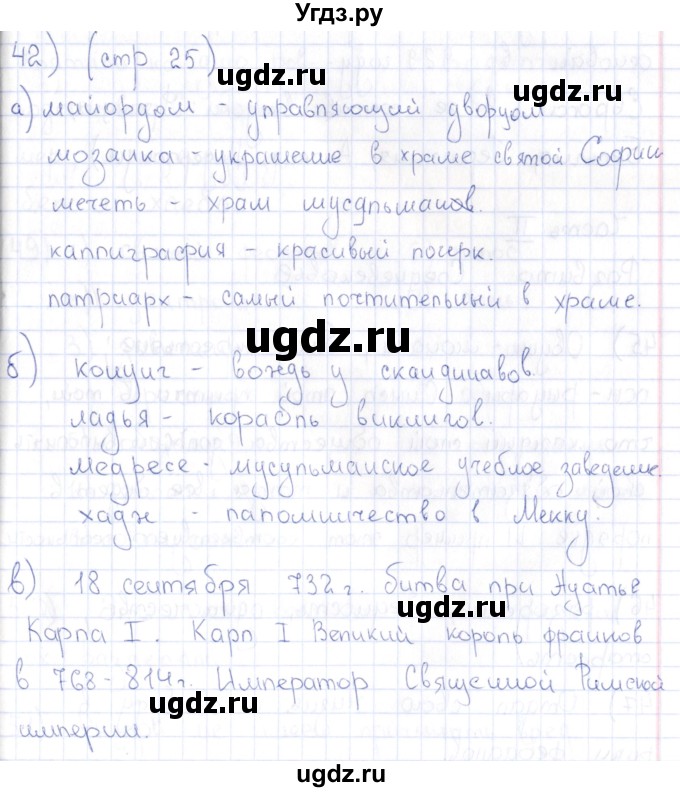 Угдз.ру
42) (стр 25)
ugdz.ru
ugdz.ru
а) майордом - управляющий дворцом
мозаика - украшение в храме святой Софии
мечеть - храм мусульманов.
каллиграфия - красивый почерк.
патриарх - самый почтительный в храме.
ugdz.ru
б) конунг - вождь у скандинавов.
ладья - корабль викингов.
ugdz.ru
ugdz.ru
медресе - мусульманское учебное заведение.
хадж - паломничество в Мекку.
в) 18 сентября 732 г. битва при Пуатье
ugdz.ru
Карла I. Карл I Великий король франков
в 768-814 г. Император Священной Римской
ugdz.ru
империи.
ugdz.ru
ugdz.ru